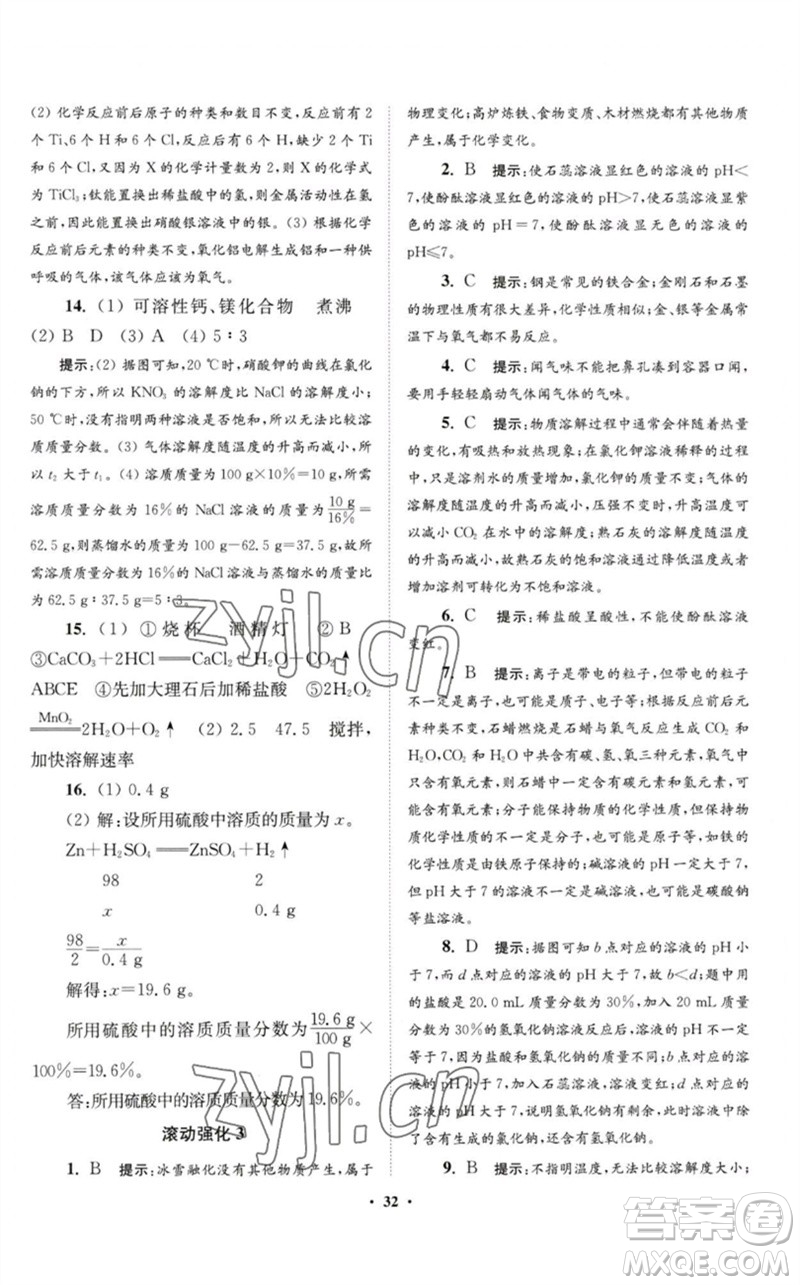 (2) 化学反应前后原子的种类和数目不变,反应前有2
个Ti、6个H和6个Cl,反应后有6个H,缺少2个Ti
和6个Cl,又因为X的化学计量数为2,故X的化学式
为TiCl₃;钛能置换出稀盐酸的氢,则金属活动性在氢
之前,因此能置换出硝酸银溶液中的银。(3) 根据化学
反应前后元素的种类不变,氧化铝电解生成铝和一种供
呼吸的气体,该气体应该为氧气。
14. (1) 可溶性钙、镁化合物 煮沸
(2) B D (3) A (4) 5∶3
提示:(2) 据图可知,20 ℃时,硝酸钾的曲线在氯化
钠的下方,所以KNO₃的溶解度比NaCl的溶解度小;
50 ℃时,没有指明两种溶液是否饱和,所以无法比较溶
质质量分数。(3) 气体溶解度随温度的升高而减小,所
以t₂大于t₁。(4) 溶质质量为100 g×10%=10 g,所需
溶质质量分数为16%的NaCl溶液的质量为10 g/16%=
62.5 g,则蒸馏水的质量为100 g-62.5 g=37.5 g。故所
需溶质质量分数为16%的NaCl溶液与蒸馏水的质量比
为62.5 g∶37.5 g=5∶3。
15. (1) ①烧杯 酒精灯 ②B
③CaCO₃+2HCl══CaCl₂+H₂O+CO₂↑
ABCE ④先加大理石后加稀盐酸 ⑤2H₂O₂
══MnO₂══2H₂O+O₂↑ (2) 2.5 47.5 搅拌,
加快溶解速率
16. (1) 0.4 g
(2) 解:设所用硫酸中溶质的质量为x。
Zn+H₂SO₄══ZnSO₄+H₂↑
98 2
x 0.4 g
98/2=x/0.4 g
解得:x=19.6 g。
所用硫酸中的溶质质量分数为19.6 g/100 g×
100%=19.6%。
答:所用硫酸中的溶质质量分数为19.6%。
滚动强化3
1. B 提示:冰雪融化没有其他物质产生,属于
物理变化;高炉炼铁、食物变质、木材燃烧都有其他物质
产生,属于化学变化。
2. B 提示:使石蕊溶液显红色的溶液的pH<
7,使酚酞溶液显红色的溶液的pH>7,使石蕊溶液显紫
色的溶液的pH=7,使酚酞溶液显无色的溶液的
pH≤7。
3. C 提示:钢是常见的铁合金;金刚石和石墨
的物理性质有很大差异,化学性质相似;金、银等金属常
温下与氧气都不易反应。
4. C 提示:闻气味不能把鼻孔凑到容器口闻,
要用手轻轻扇动气体闻气体的气味。
5. C 提示:物质溶解过程中通常会伴随着热量
的变化,有吸热和放热现象;氯化钾溶液稀释的过程
中,只是溶剂水的质量增加,氯化钾的质量不变;气体的
溶解度随温度的升高而减小,压强不变时,升高温度能
减小CO₂在水中的溶解度;熟石灰的溶解度随温度的
升高而减小,故升高温度能将接近饱和的熟石灰的不饱
和溶液转化为饱和溶液。
6. C 提示:稀盐酸呈酸性,不能使酚酞溶液
变红。
7. B 提示:离子是带电的粒子,但带电的粒子
不一定是离子,也可能是质子、电子等;根据反应前后元
素的种类不变,石蜡燃烧是石蜡与氧气反应生成CO₂
和H₂O,CO₂和H₂O中共含有碳、氢、氧三种元素,反
应物氧气中只含有氧元素,则石蜡中一定含有碳、氢元
素,可能含有氧元素;分子能保持物质的化学性质,但保
持物质化学性质的不一定是分子,也可能是原子,如铁的
化学性质是由铁原子保持的;碱溶液的pH一定大于7,
但pH大于7的溶液不一定是碱溶液,也可能是碳酸钠
等盐溶液。
8. D 提示:据图可知b点对应的溶液的pH小
于7,而d点对应的溶液的pH大于7,故b<d;题中使
用的盐酸是20.0 mL质量分数为30%,加入20 mL质
量分数为30%的氢氧化钠溶液反应后,溶液的pH不一
定等于7,要通过相关的计算来说明;b点对应的溶
液的pH小于7,加入石蕊溶液,溶液变红;d点对应的
溶液的pH大于7,说明氢氧化钠有剩余,此时的溶质为
反应生成的氯化钠,还有剩余的氢氧化钠。
9. B 提示:不指明温度,无法比较溶解度大小;
· 32 ·
zyjl.cn
zyjl.cn
答案卷
MXQE.COM